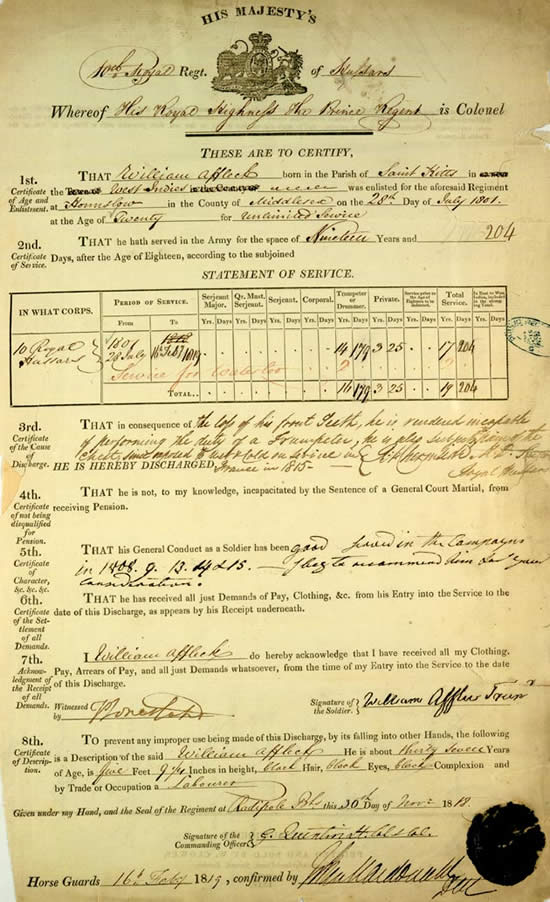 HIS MAJESTY'S
10th Royal Regt. of Hussars
Whereof His Royal Highness The Prince Regent is Colonel
THESE ARE TO CERTIFY,
1st.
Certificate
of Age and
Enlistment.
THAT William Affleck born in the Parish of Saint Kitts in
the Town of West Indies in the County of was enlisted for the aforesaid Regiment
at Hounslow in the County of Middlesex on the 28th Day of July 1801.
at the Age of Twenty for Unlimited Service
2nd.
Certificate
of Service.
THAT he hath served in the Army for the space of Nineteen Years and 204
Days, after the Age of Eighteen, according to the subjoined
STATEMENT OF SERVICE.
IN WHAT CORPS. PERIOD OF SERVICE. Serjeant Major. Qr. Mast. Serjeant. Serjeant. Corporal. Trumpeter or Drummer. Private. Total Service.
From To Yrs. Days Yrs. Days Yrs. Days Yrs. Days Yrs. Days Yrs. Days Yrs. Days Yrs. Days Yrs. Days
10 Royal Hussars 1801 28 July 14 179 3 25 17 204
Service for Waterloo 2 2
TOTAL.. 16 179 3 25 19 204
3rd.
Certificate
of the Cause
of
Discharge.
THAT in consequence of the loss of his front Teeth, he is rendered incapable
of performing the duty of a Trumpeter, he is also of the
Chest,
HE IS HEREBY DISCHARGED France in 1815 -
4th.
Certificate
of not being
disqualified
for
Pension.
THAT he is not, to my knowledge, incapacitated by the Sentence of a General Court Martial, from
receiving Pension.
5th.
Certificate
of
Character,
&c. &c. &c.
THAT his General Conduct as a Soldier has been good served in the Campaigns
in 1808. 9. 13. 4 & 15. - I beg to recommend him for your
Consideration.
6th.
Certificate
of the Set-
tlement
of all
Demands.
THAT he has received all just Demands of Pay, Clothing, &c. from his Entry into the Service to the
date of this Discharge, as appears by his Receipt underneath.
7th.
Acknow-
ledgment of
the Receipt
of all
Demands.
I William Affleck do hereby acknowledge that I have received all my Clothing,
Pay, Arrears of Pay, and all just Demands whatsoever, from the time of my Entry into the Service to the date
of this Discharge.
Witnessed
by
Signature of
the Soldier. William
8th.
Certificate
of Descrip-
tion.
TO prevent any improper use being made of this Discharge, by its falling into other Hands, the following
is a Description of the said William Affleck He is about thirty Seven Years
of Age, is five Feet 9 Inches in height, black Hair, black Eyes, black Complexion and
by Trade or Occupation a Labourer
Given under my Hand, and the Seal of the Regiment at Radipole this 30th Day of Novr. 1818.
Signature of the
Commanding Officer G. Quentin
Horse Guards 16th Feby 1819, confirmed by